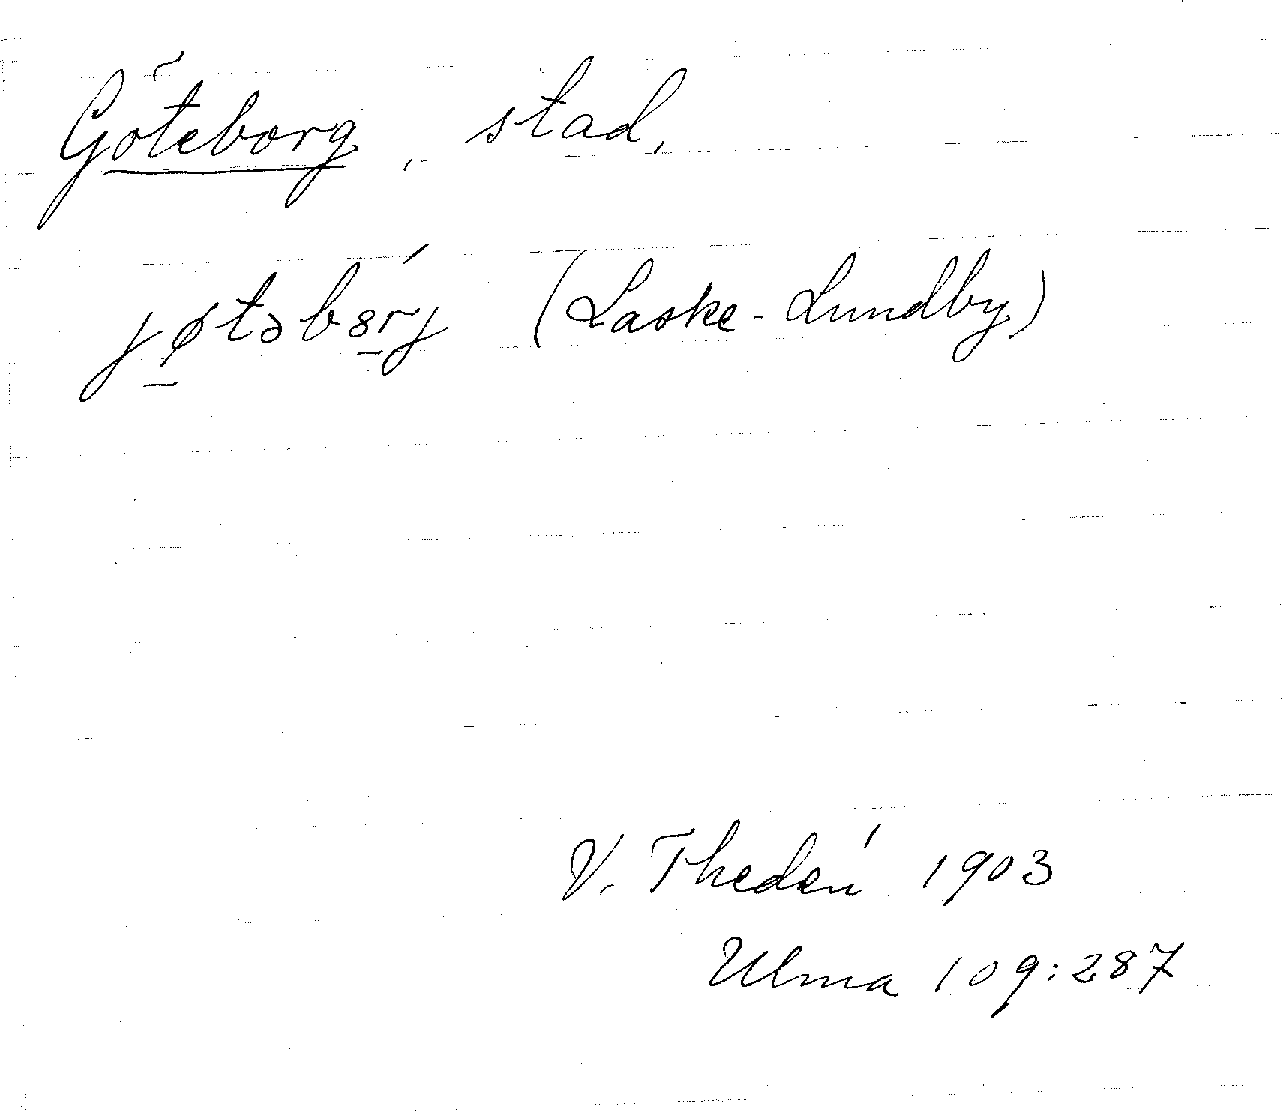 Göteborg, stad,
jøtəbɞrj (Laske-Lundby)
V. Thedén 1903
Ulma 109:287